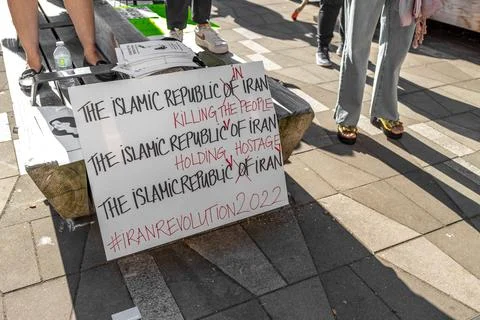 THE ISLAMIC REPUBLIC OF IRAN
IN
KILLING THE PEOPLE
THE ISLAMIC REPUBLIC OF IRAN
HOLDING HOSTAGE
THE ISLAMIC REPUBLIC OF IRAN
#IRANREVOLUTION2022